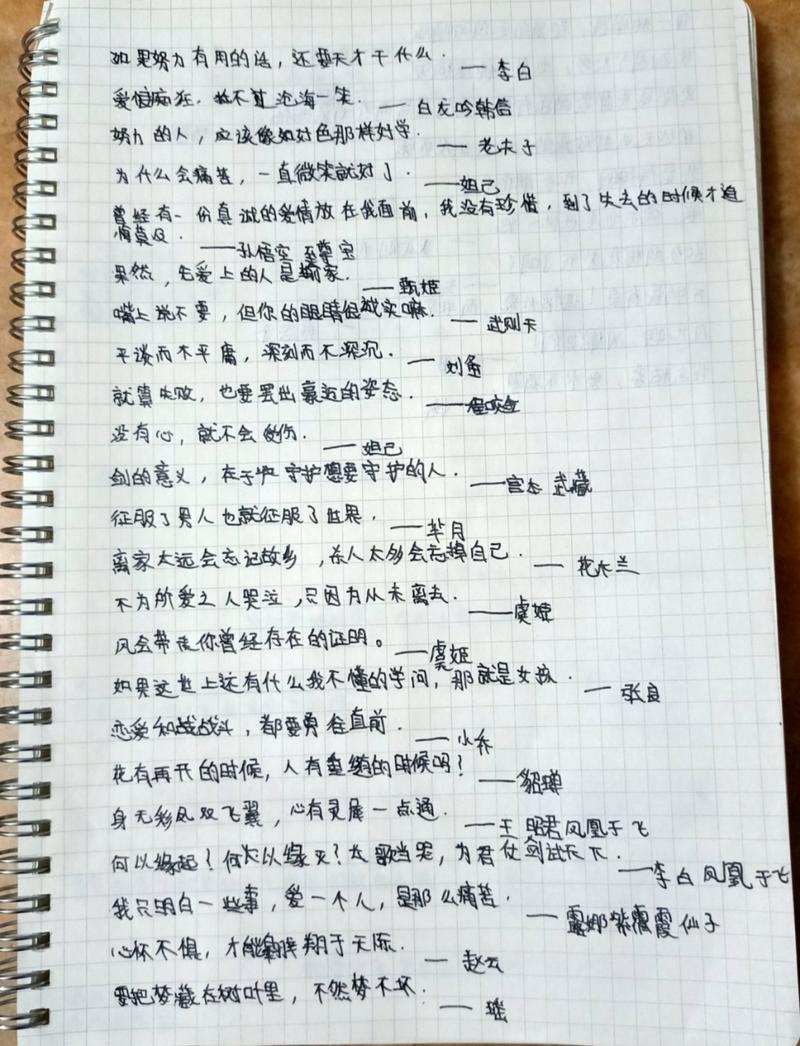 如果努力有用的话，还要天才干什么. ——李白
爱恨痴狂，敌不过沧海一笑. ——白龙吟韩信
努力的人，应该像好色那样好学. ——老夫子
为什么会痛苦，一直微笑就好了. ——妲己
曾经有一份真诚的爱情放在我面前，我没有珍惜，到了失去的时候才追
悔莫及. ——孙悟空 至尊宝
果然，先爱上的人是输家. ——甄姬
嘴上说不要，但你的眼睛很诚实嘛. ——武则天
平淡而不平庸，深刻而不深沉. ——刘备
就算失败，也要摆出豪迈的姿态. ——程咬金
没有心，就不会受伤. ——妲己
剑的意义，在于守护想要守护的人. ——宫本 武藏
征服了男人也就征服了世界. ——芈月
离家太远会忘记故乡，杀人太多会忘掉自己. ——花木兰
不为所爱之人哭泣，只因为从未离去. ——虞姬
风会带走你曾经存在的证明。——虞姬
如果这世上还有什么我不懂的学问，那就是女孩. ——张良
恋爱和战战斗，都要勇往直前. ——小乔
花有再开的时候，人有重逢的时候吗? ——貂蝉
身无彩凤双飞翼，心有灵犀一点通. ——王昭君凤凰于飞
何以缘起?何以缘灭?长歌当哭，为君仗剑试天下. ——李白 凤凰于飞
我只明白一些事，爱一个人，是那么痛苦. ——露娜紫霞仙子
心怀不惧，才能翱翔于天际. ——赵云
要把梦藏在树叶里，不然梦不坏. ——瑶